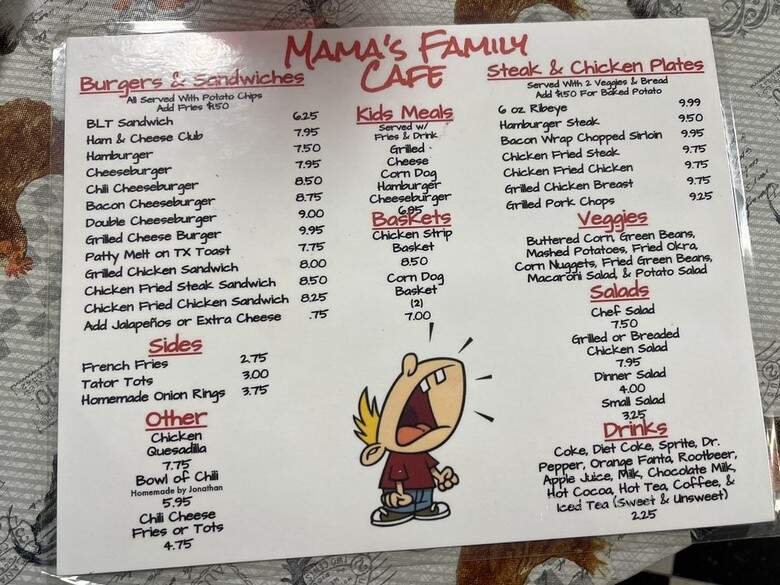 MAMA'S FAMILY
CAFE
Burgers & Sandwiches
All Served With Potato Chips
Add Fries $1.50
BLT Sandwich 6.25
Ham & Cheese Club 7.95
Hamburger 7.50
Cheeseburger 7.95
Chili Cheeseburger 8.50
Bacon Cheeseburger 8.75
Double Cheeseburger 9.00
Grilled Cheese Burger 9.95
Patty Melt on TX Toast 7.75
Grilled Chicken Sandwich 8.00
Chicken Fried Steak Sandwich 8.50
Chicken Fried Chicken Sandwich 8.25
Add Jalapeños or Extra Cheese .75
Sides
French Fries 2.75
Tator Tots 3.00
Homemade Onion Rings 3.75
Other
Chicken
Quesadilla
7.75
Bowl of Chili
Homemade by Jonathan
5.95
Chili Cheese
Fries or Tots
4.75
Kids Meals
Served w/
Fries & Drink
Grilled
Cheese
Corn Dog
Hamburger
Cheeseburger
6.95
Baskets
Chicken Strip
Basket
8.50
Corn Dog
Basket
(2)
7.00
Steak & Chicken Plates
Served With 2 Veggies & Bread
Add $1.50 For Baked Potato
6 oz Ribeye 9.99
Hamburger Steak 9.50
Bacon Wrap Chopped Sirloin 9.95
Chicken Fried Steak 9.75
Chicken Fried Chicken 9.75
Grilled Chicken Breast 9.75
Grilled Pork Chops 9.25
Veggies
Buttered Corn, Green Beans,
Mashed Potatoes, Fried Okra,
Corn Nuggets, Fried Green Beans,
Macaroni Salad, & Potato Salad
Salads
Chef Salad
7.50
Grilled or Breaded
Chicken Salad
7.95
Dinner Salad
4.00
Small Salad
3.25
Drinks
Coke, Diet Coke, Sprite, Dr.
Pepper, Orange Fanta, Rootbeer,
Apple Juice, Milk, Chocolate Milk,
Hot Cocoa, Hot Tea, Coffee, &
Iced Tea (Sweet & Unsweet)
2.25